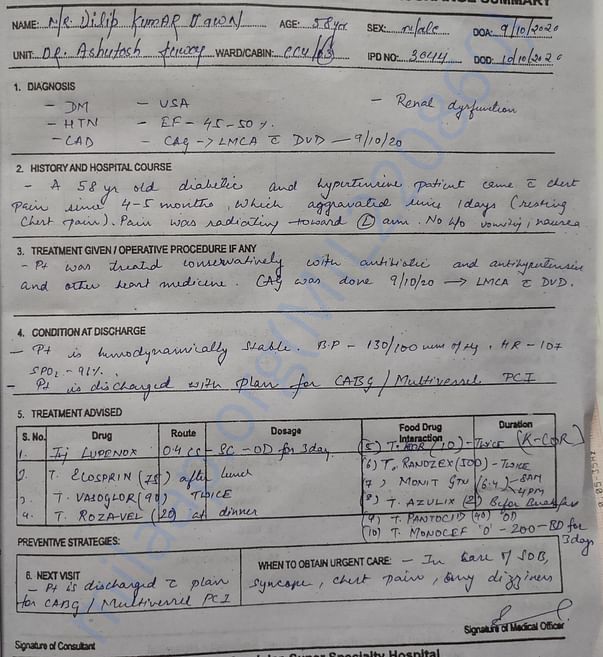 SUMMARY
NAME: Mr. Dilip Kumar Dawn AGE: 58yr SEX: male DOA: 9/10/2020
UNIT: Dr. Ashutosh WARD/CABIN: CCU/03 IPD NO: 3044 DOD: 10/10/2020
1. DIAGNOSIS
- DM - USA - Renal dysfunction
- HTN - EF - 45-50%.
- CAD - CAG -> LMCA c̄ DVD - 9/10/20
2. HISTORY AND HOSPITAL COURSE
- A 58 yr old diabetic and hypertensive patient came c̄ chest
pain since 4-5 months, which aggravated since 1days (resting
chest pain). Pain was radiating toward (L) arm. No h/o vomiting, nausea
3. TREATMENT GIVEN / OPERATIVE PROCEDURE IF ANY
- Pt was treated conservatively with antibiotic and antihypertensive
and other heart medicine. CAG was done 9/10/20 -> LMCA c̄ DVD.
4. CONDITION AT DISCHARGE
- Pt is hemodynamically stable. B.P - 130/100 mm of Hg, HR - 107
SPO2 - 91%.
- Pt is discharged with plan for CABG / Multivessel PCI
5. TREATMENT ADVISED
S. No. Drug Route Dosage Food Drug Interaction Duration
1. Inj LUPENOX 04 cc - SC - OD for 3day
2. T. ECOSPRIN (75) after lunch
3. T. VASOGLOR (90) TWICE
4. T. ROZAVEL (20) at dinner
(5) T. (10) - Twice (K-COR)
(6) T. RANOZEX (500) - TWICE
(7) MONIT GTN (6.4) - 8AM
4PM
(8) T. AZULIX (2) Before Breakfast
(9) T. PANTOCID (40) OD
(10) T. MONOCEF 'O' - 200 - BD for
3days
PREVENTIVE STRATEGIES:
6. NEXT VISIT
- Pt is discharged c̄ plan
for CABG / Multivessel PCI
WHEN TO OBTAIN URGENT CARE: - In case of SOB,
syncope, chest pain, any dizziness
Signature of Medical Officer
Signature of Consultant
Super Specialty Hospital